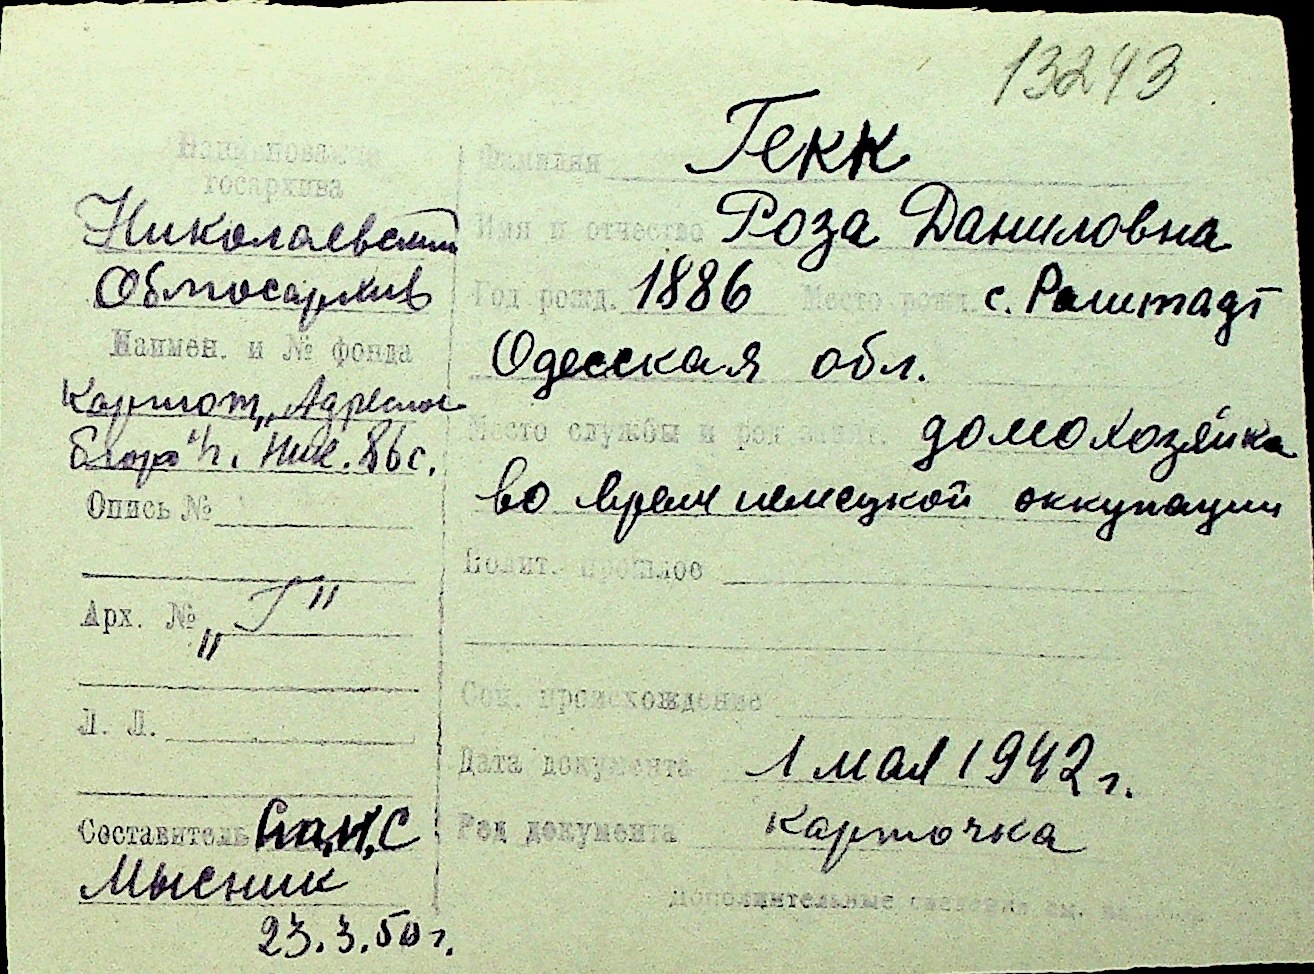 13243
Наименование
госархива
Николаевский
Облгосархив
Наимен. и № фонда
Картот. „Адресное
бюро" г. Ник.
Опись №
Арх. № „Г"
Л. Л.
Составитель
Мысник
23.3.50 г.
Фамилия Гекк
Имя и отчество Роза Даниловна
Год рожд. 1886 Место рожд. с. Раштадт
Одесская обл.
Место службы и род занят. домохозяйка
во время немецкой оккупации
Полит. прошлое
Соц. происхождение
Дата документа 1 мая 1942 г.
Род документа карточка
Дополнительные сведения см. на